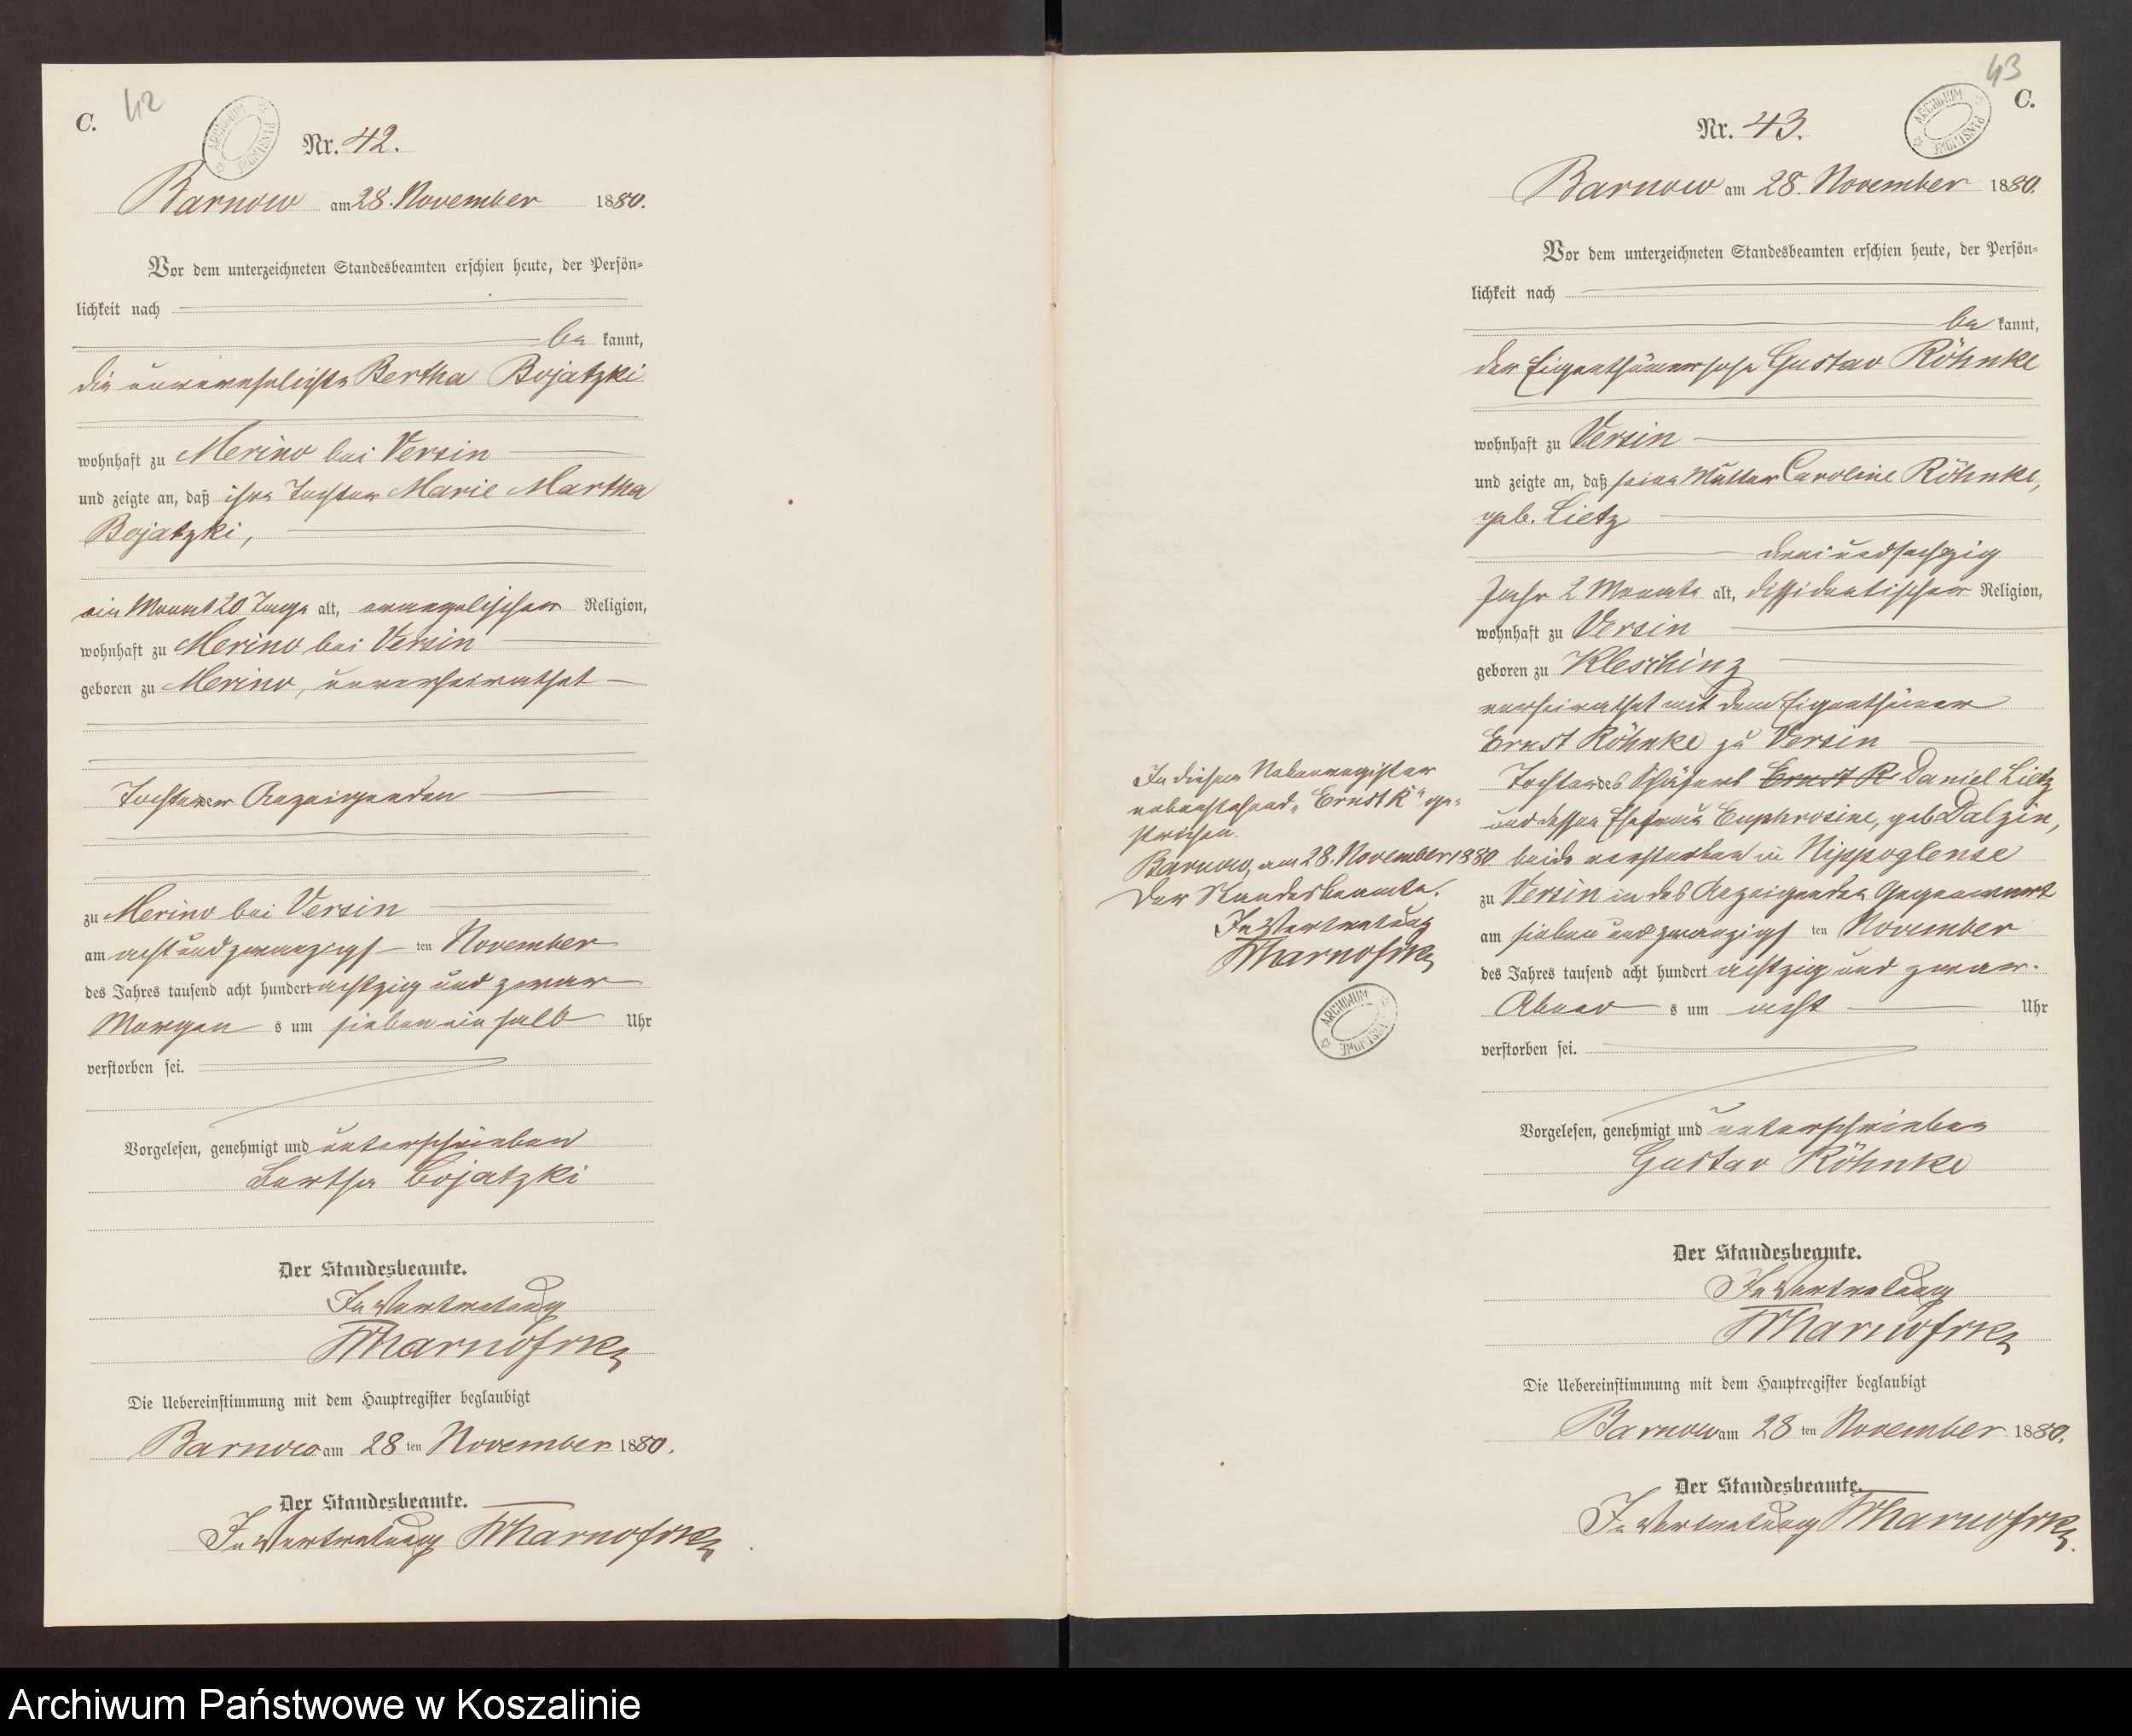 C.
42
Nr. 42.
Barnow am 28. November 1880.
Vor dem unterzeichneten Standesbeamten erschien heute, der Persön-
lichkeit nach
be kannt,
die unverehelichte Bertha Bojatzki
wohnhaft zu Merino bei Versin
und zeigte an, daß ihre Tochter Marie Martha
Bojatzki,
ein Monat 20 Tage alt, evangelischer Religion,
wohnhaft zu Merino bei Versin
geboren zu Merino, unverheirathet
Tochter der Anzeigenden
zu Merino bei Versin
am acht und zwanzigs ten November
des Jahres tausend acht hundert achtzig und zwar
Morgen s um sieben ein halb Uhr
verstorben sei.
Vorgelesen, genehmigt und unterschrieben
Bertha Bojatzki
Der Standesbeamte.
In Vertretung
Die Uebereinstimmung mit dem Hauptregister beglaubigt
Barnow am 28 ten November 1880.
Der Standesbeamte.
In Vertretung
43
C.
ARCHIWUM PAŃSTWOWE
Nr. 43.
Barnow am 28. November 1880.
Vor dem unterzeichneten Standesbeamten erschien heute, der Persön-
lichkeit nach
be kannt,
der Eigenthümersohn Gustav Röhnke
wohnhaft zu Versin
und zeigte an, daß seine Mutter Caroline Röhnke,
geb. Lietz
drei und sechzig
Jahr 2 Monate alt, dissidentischer Religion,
wohnhaft zu Versin
geboren zu Kleschinz
verheirathet mit dem Eigenthümer
Ernst Röhnke zu Versin
Tochter des Schäfers Ernst R Daniel Lietz
und dessen Ehefrau Euphrosine, geb Dalzin,
beide verstorben in Nippoglense
zu Versin in des Anzeigenden Gegenwart
am sieben und zwanzigs ten November
des Jahres tausend acht hundert achtzig und zwar
Abend s um acht Uhr
verstorben sei.
In diesem Nebenregister
nebenstehend „Ernst R“ ge-
strichen.
Barnow, am 28. November 1880
Der Standesbeamte.
In Vertretung
ARCHIWUM PAŃSTWOWE
Vorgelesen, genehmigt und unterschrieben
Gustav Röhnke
Der Standesbeamte.
In Vertretung
Die Uebereinstimmung mit dem Hauptregister beglaubigt
Barnow am 28 ten November 1880.
Der Standesbeamte.
In Vertretung
Archiwum Państwowe w Koszalinie